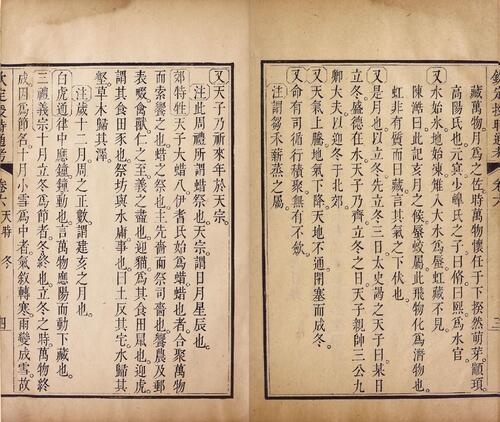 藏萬物。月爲之佐。時萬物懷任于下。揆然萌芽。顓頊
高陽氏也。元冥少皥氏之子曰脩曰熙爲水官
又水始氷。地始凍。雉入大水爲蜃。虹藏不見。
陳澔曰。此記亥月之候。蜃蛟屬。此飛物化爲潛物也。
虹非有質而曰藏。言其氣之下伏也。
又是月也。以立冬。先立冬三日。太史謁之天子曰。某日
立冬。盛德在水。天子乃齊。立冬之日。天子親帥三公九
卿大夫以迎冬于北郊。
又天氣上騰。地氣下降。天地不通。閉塞而成冬。
又命有司循行積聚。無有不斂。
注謂芻禾薪蒸之屬。
又天子乃祈來年於天宗。
注此周禮所謂蜡祭也。天宗謂日月星辰也。
郊特牲天子大蜡八。伊耆氏始爲蜡。蜡也者。合聚萬物
而索饗之也。蜡之祭也。主先嗇而祭司嗇也。饗農及郵
表畷禽獸。仁之至義之盡也。迎貓爲其食田鼠也。迎虎
謂其食田豕也。祭坊與水庸事也。曰土反其宅。水歸其
壑。草木歸其澤。
注歲十二月。周之正數。謂建亥之月也。
白虎通律中應鐘。鐘動也。言萬物應陽而動下藏也。
三禮義宗十月立冬爲節者。冬終也。立冬之時。萬物終
成。因爲節名。十月小雪爲中者。氣叙轉寒。雨變成雪。故
欽定授時通考 卷六 天時 冬 四